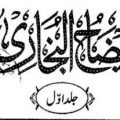 ایضاح البخاری
جلد اوّل